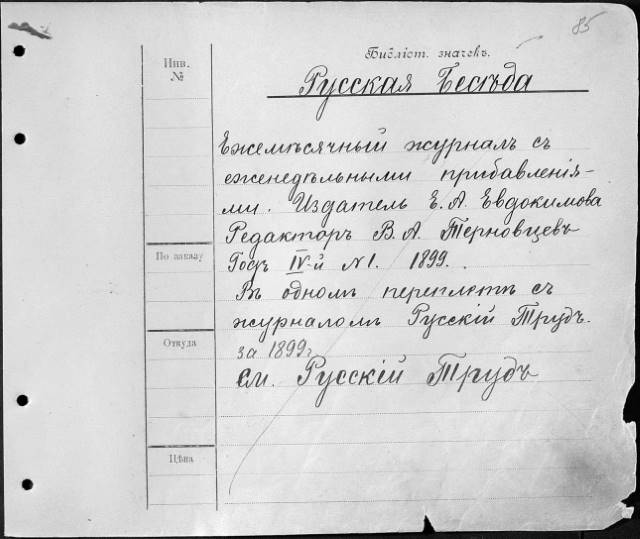 85
Библіот. значекъ.
Инв.
№
Русская Бесѣда
Ежемѣсячный журналъ съ
еженедѣльными прибавленія-
ми. Издатель Е. А. Евдокимова
Редакторъ В. А. Терновцевъ
По заказу
Годъ IV-й №1. 1899.
Въ одномъ переплетѣ съ
журналомъ Русскій Трудъ.
Откуда
за 1899 г.
см. Русскій Трудъ
Цѣна